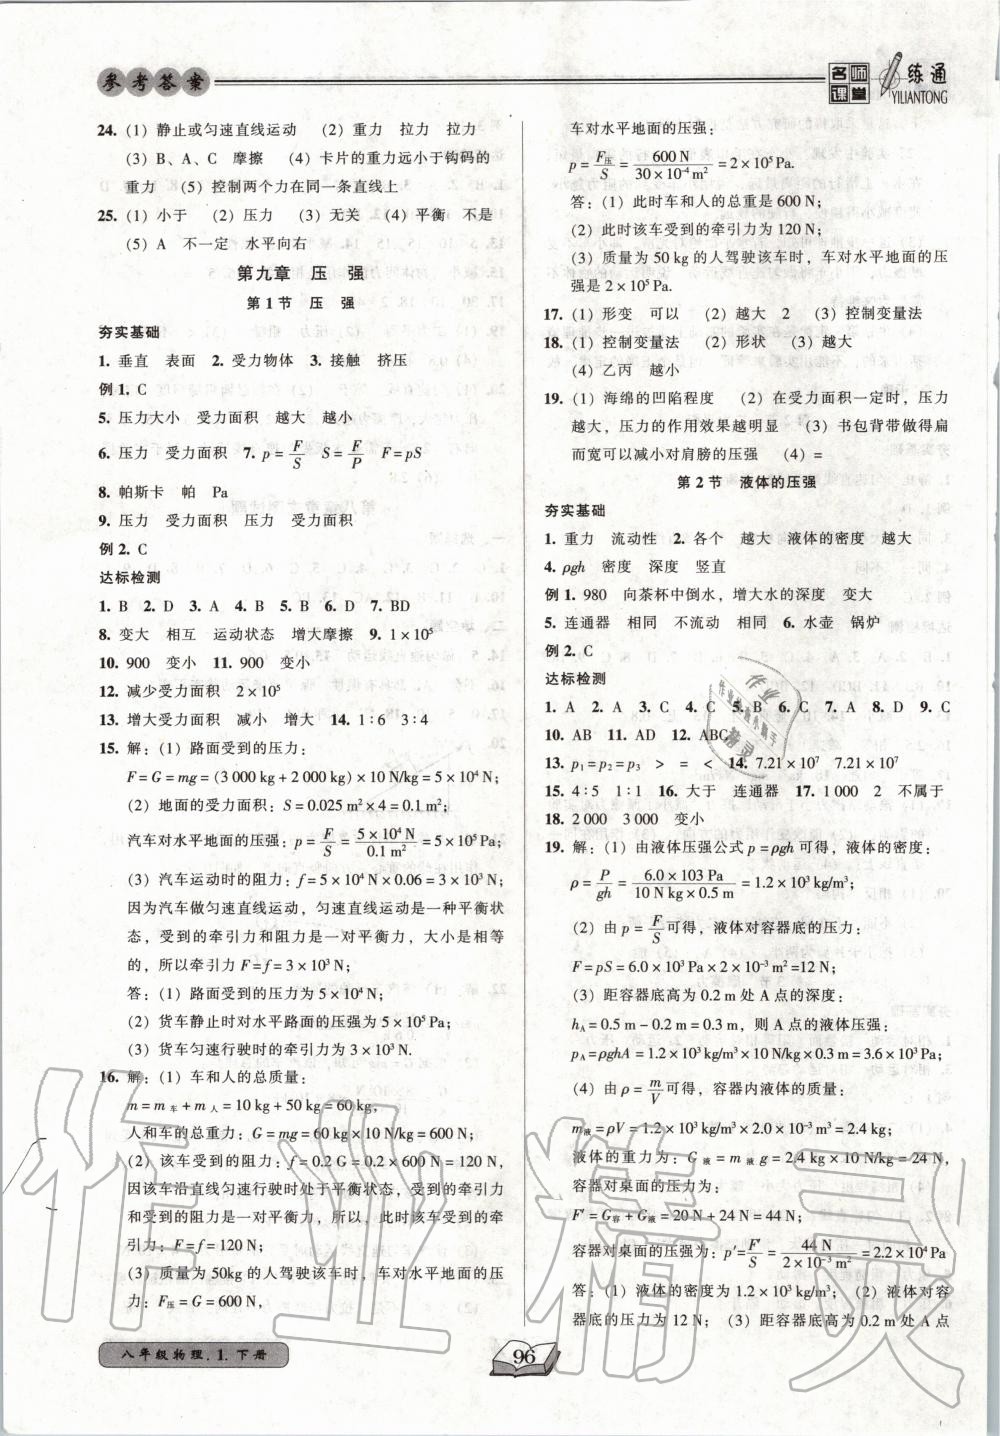 参考答案
名师课堂 一练通
YILIANTONG
24. (1) 静止或匀速直线运动 (2) 重力 拉力 拉力
(3) B、A、C 摩擦 (4) 卡片的重力远小于钩码的
重力 (5) 控制两个力在同一条直线上
25. (1) 小于 (2) 压力 (3) 无关 (4) 平衡 不是
(5) A 不一定 水平向右
第九章 压 强
第 1 节 压 强
夯实基础
1. 垂直 表面 2. 受力物体 3. 接触 挤压
例 1. C
5. 压力大小 受力面积 越大 越小
6. 压力 受力面积 7. p = F/S S = F/P F = pS
8. 帕斯卡 帕 Pa
9. 压力 受力面积 压力 受力面积
例 2. C
达标检测
1. B 2. D 3. A 4. B 5. B 6. D 7. BD
8. 变大 相互 运动状态 增大摩擦 9. 1×10⁵
10. 900 变小 11. 900 变小
12. 减少受力面积 2×10⁵
13. 增大受力面积 减小 增大 14. 1∶6 3∶4
15. 解：(1) 路面受到的压力：
F = G = mg = (3 000 kg + 2 000 kg) × 10 N/kg = 5 × 10⁴ N；
(2) 地面的受力面积：S = 0.025 m² × 4 = 0.1 m²；
汽车对水平地面的压强：p = F/S = 5×10⁴ N/0.1 m² = 5 × 10⁵ Pa；
(3) 汽车运动时的阻力：f = 5 × 10⁴ N × 0.06 = 3 × 10³ N；
因为汽车做匀速直线运动，匀速直线运动是一种平衡状
态，受到的牵引力和阻力是一对平衡力，大小是相等
的，所以牵引力 F = f = 3 × 10³ N；
答：(1) 路面受到的压力为 5 × 10⁴ N；
(2) 货车静止时对水平路面的压强为 5 × 10⁵ Pa；
(3) 货车匀速行驶时的牵引力为 3 × 10³ N.
16. 解：(1) 车和人的总质量：
m = m车 + m人 = 10 kg + 50 kg = 60 kg，
人和车的总重力：G = mg = 60 kg × 10 N/kg = 600 N；
(2) 该车受到的阻力：f = 0.2 G = 0.2 × 600 N = 120 N，
因该车沿直线匀速行驶时处于平衡状态，受到的牵引力
和受到的阻力是一对平衡力，所以，此时该车受到的牵
引力：F = f = 120 N；
(3) 质量为 50kg 的人驾驶该车时，车对水平地面的压
力：F压 = G = 600 N，
车对水平地面的压强：
p = F压/S = 600 N/30 × 10⁻⁴ m² = 2 × 10⁵ Pa.
答：(1) 此时车和人的总重是 600 N；
(2) 此时该车受到的牵引力为 120 N；
(3) 质量为 50 kg 的人驾驶该车时，车对水平地面的压
强是 2 × 10⁵ Pa.
17. (1) 形变 可以 (2) 越大 2 (3) 控制变量法
18. (1) 控制变量法 (2) 形状 (3) 越大
(4) 乙丙 越小
19. (1) 海绵的凹陷程度 (2) 在受力面积一定时，压力
越大，压力的作用效果越明显 (3) 书包背带做得扁
而宽可以减小对肩膀的压强 (4) =
第 2 节 液体的压强
夯实基础
1. 重力 流动性 2. 各个 越大 液体的密度 越大
4. ρgh 密度 深度 竖直
例 1. 980 向茶杯中倒水，增大水的深度 变大
5. 连通器 相同 不流动 相同 6. 水壶 锅炉
例 2. C
达标检测
1. A 2. A 3. C 4. C 5. B 6. C 7. A 8. D 9. C
10. AB 11. AD 12. ABC
13. p₁ = p₂ = p₃ > = < 14. 7.21 × 10⁷ 7.21 × 10⁷
15. 4∶5 1∶1 16. 大于 连通器 17. 1 000 2 不属于
18. 2 000 3 000 变小
19. 解：(1) 由液体压强公式 p = ρgh 可得，液体的密度：
ρ = P/gh = 6.0 × 103 Pa/10 N kg × 0.5 m = 1.2 × 10³ kg/m³；
(2) 由 p = F/S 可得，液体对容器底的压力：
F = pS = 6.0 × 10³ Pa × 2 × 10⁻³ m² = 12 N；
(3) 距容器底高为 0.2 m 处 A 点的深度：
hA = 0.5 m − 0.2 m = 0.3 m，则 A 点的液体压强：
pA = ρghA = 1.2 × 10³ kg/m³ × 10 N/kg × 0.3 m = 3.6 × 10³ Pa；
(4) 由 ρ = m/V 可得，容器内液体的质量：
m液 = ρV = 1.2 × 10³ kg/m³ × 2.0 × 10⁻³ m³ = 2.4 kg；
液体的重力为：G液 = m液 g = 2.4 kg × 10 N/kg = 24 N
容器对桌面的压力为：
F′ = G容 + G液 = 20 N + 24 N = 44 N；
容器对桌面的压强为：p′ = F′/S = 44 N/2 × 10⁻³ m² = 2.2 × 10⁴ Pa
答：(1) 液体的密度为 1.2 × 10³ kg/m³；(2) 液体对容
器底的压力为 12 N；(3) 距容器底高为 0.2 m 处 A 点
八年级物理．1．下册
96
作业精灵